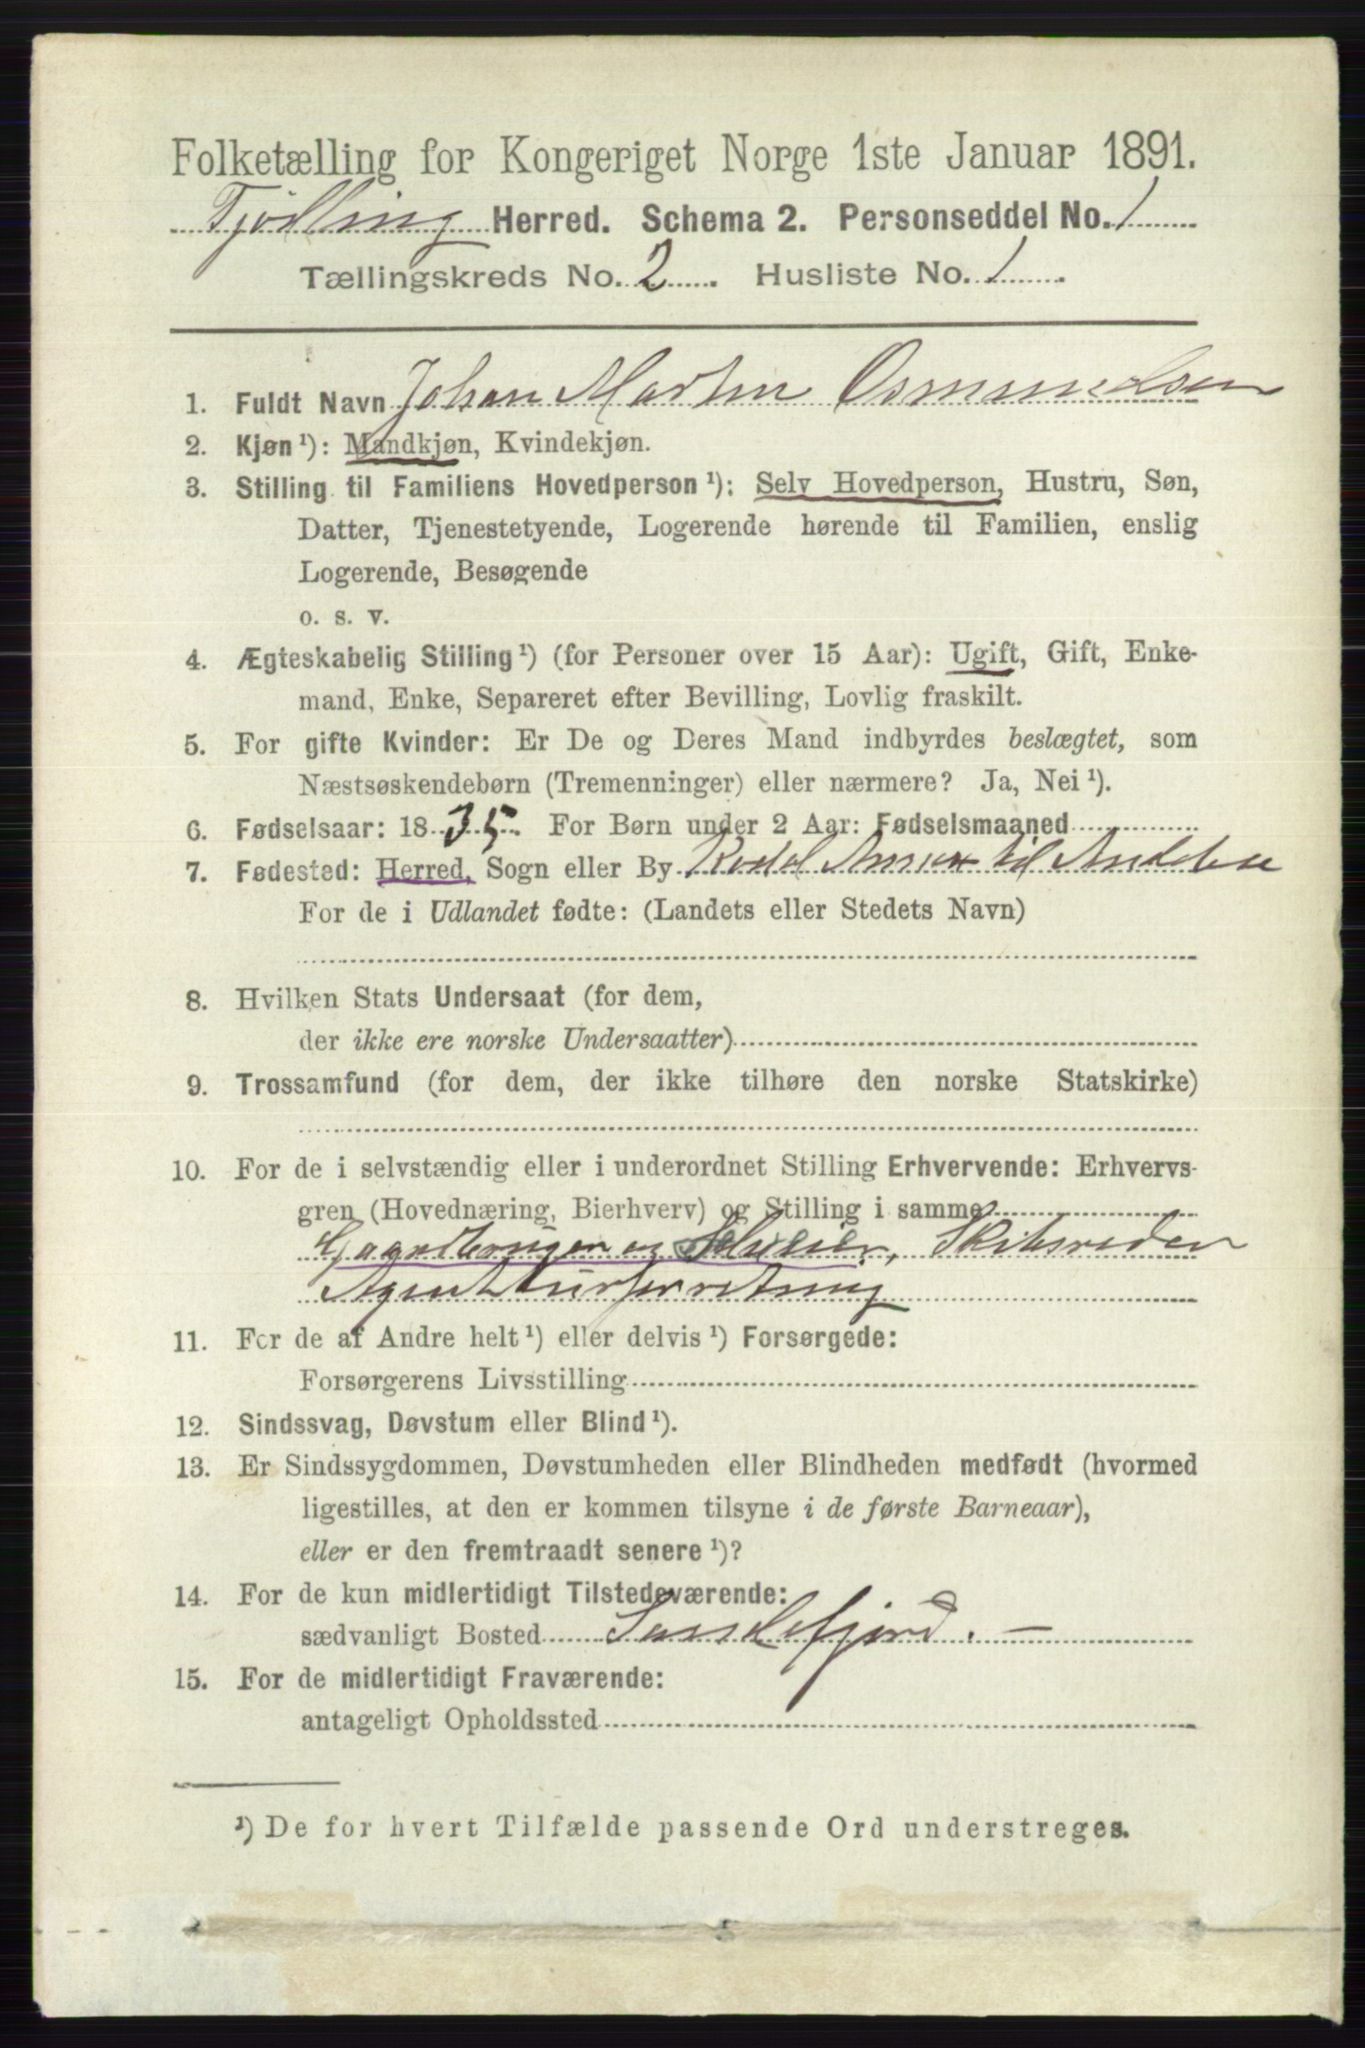 Folketælling for Kongeriget Norge 1ste Januar 1891.
Tjødling Herred. Schema 2. Personseddel No. 1
Tællingskreds No. 2. Husliste No. 1
1. Fuldt Navn Johan Martin Osmundsen
2. Kjøn ¹): Mandkjøn, Kvindekjøn.
3. Stilling til Familiens Hovedperson ¹): Selv Hovedperson, Hustru, Søn,
Datter, Tjenestetyende, Logerende hørende til Familien, enslig
Logerende, Besøgende
o. s. v.
4. Ægteskabelig Stilling ¹) (for Personer over 15 Aar): Ugift, Gift, Enke-
mand, Enke, Separeret efter Bevilling, Lovlig fraskilt.
5. For gifte Kvinder: Er De og Deres Mand indbyrdes beslægtet, som
Næstsøskendebørn (Tremenninger) eller nærmere? Ja, Nei ¹).
6. Fødselsaar: 1835. For Børn under 2 Aar: Fødselsmaaned
7. Fødested: Herred, Sogn eller By Kodal Annex til Andebu
For de i Udlandet fødte: (Landets eller Stedets Navn)
8. Hvilken Stats Undersaat (for dem,
der ikke ere norske Undersaatter)
9. Trossamfund (for dem, der ikke tilhøre den norske Statskirke)
10. For de i selvstændig eller i underordnet Stilling Erhvervende: Erhvervs-
gren (Hovednæring, Bierhverv) og Stilling i samme
Gaardbruger og Selveier, Skibsreder
Agenturforretning
11. For de af Andre helt ¹) eller delvis ¹) Forsørgede:
Forsørgerens Livsstilling
12. Sindssvag, Døvstum eller Blind ¹).
13. Er Sindssygdommen, Døvstumheden eller Blindheden medfødt (hvormed
ligestilles, at den er kommen tilsyne i de første Barneaar),
eller er den fremtraadt senere ¹)?
14. For de kun midlertidigt Tilstedeværende:
sædvanligt Bosted Sandefjord. —
15. For de midlertidigt Fraværende:
antageligt Opholdssted
¹) De for hvert Tilfælde passende Ord understreges.